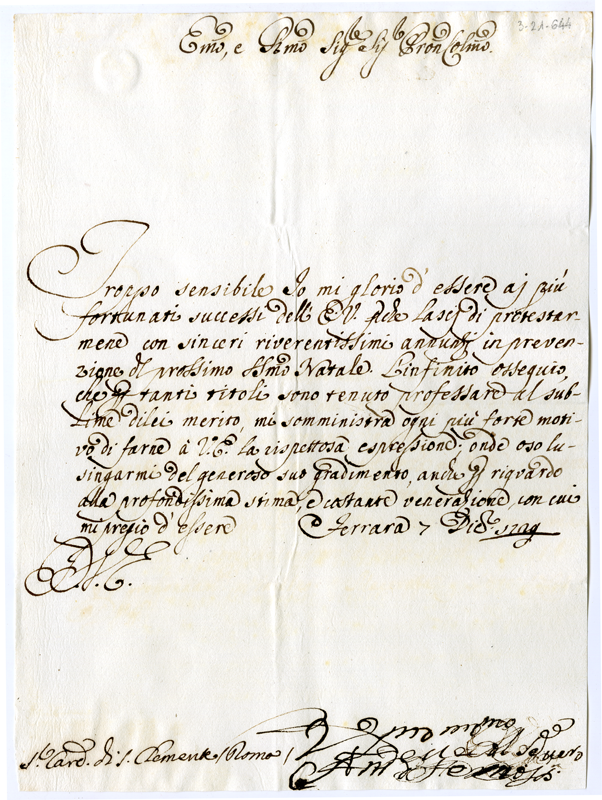 3-21-644
Emo, e Rmo Sigre Sigr Pron Colmo.
Troppo sensibile Io mi glorio d'essere aj più
fortunati successi dell'E.V. pche lascj di protestar
mene con sinceri riverentissimi annunzj in preven-
zione del prossimo SSmo Natale. L'infinito ossequio,
che p tanti titoli sono tenuto professare al sub-
lime dilei merito, mi somministra ogni più forte moti-
vo di farne à V.E. la rispettosa espressione; onde oso lu-
singarmi del generoso suo gradimento, anche p riguardo
alla profondissima stima, e costante venerazione, con cui
mi pregio d'essere Ferrara 7 Dicre
D.V.E.
Sr Card. di S. Clemente / Roma /